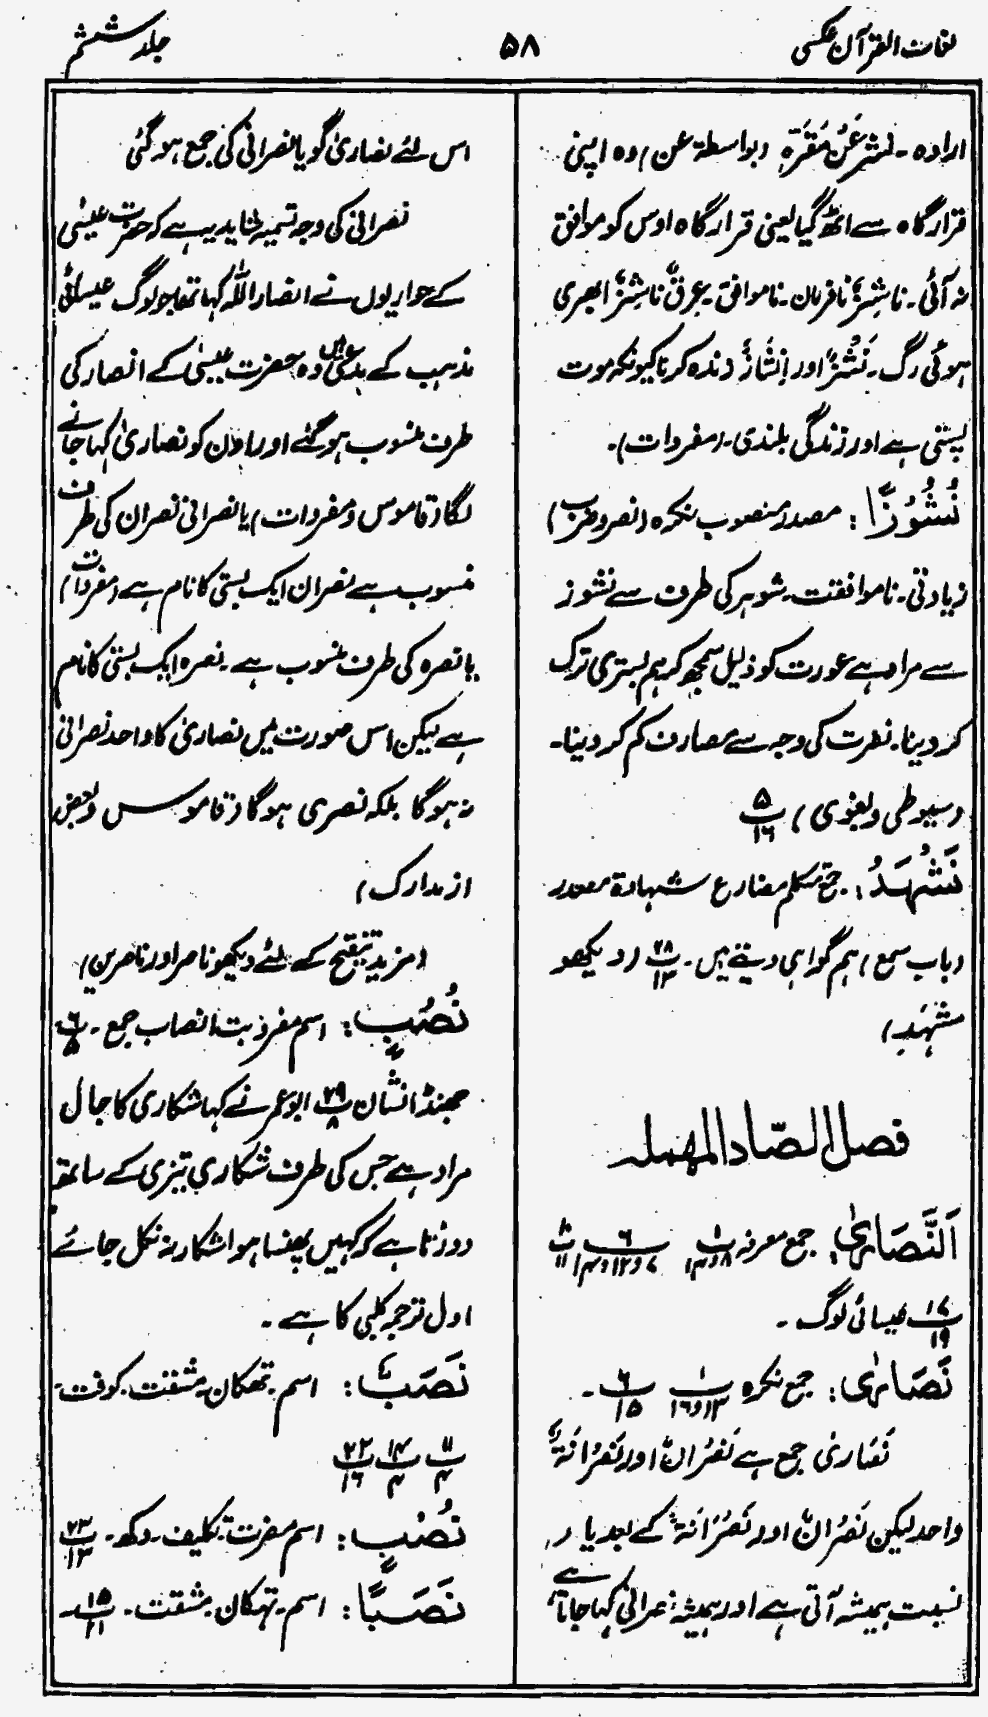 لغات القرآن عکسی
۵۸
جلد ششم
ارادہ۔ نشز عَنْ مَقَرِّہٖ (بواسطۂ عن) وہ اپنی
قرار گاہ سے اٹھ گیا یعنی قرار گاہ اوس کو موافق
نہ آئی۔ ناشِزٌ نافرمان۔ ناموافق۔ عِرقٌ ناشِزٌ ابھری
ہوئی رگ۔ نَشْزٌ اور اِنْشَازٌ زندہ کرنا کیونکہ موت
پستی ہے اور زندگی بلندی۔ (مفردات)۔
نُشُوْزًا: مصدر منصوب نکرہ (نصر وضرب)
زیادتی۔ ناموافقت۔ شوہر کی طرف سے نشوز
سے مراد ہے عورت کو ذلیل سمجھ کر ہم بستری ترک
کر دینا۔ نفرت کی وجہ سے مصارف کم کر دینا۔
(سیوطی و بغوی) پ ۵ ۱۶
نَشْهَدُ: جمع متکلم مضارع شهادة مصدر
(باب سمع) ہم گواہی دیتے ہیں۔ پ ۲۸ ۱۳ (دیکھو
مشہد)
فصل الصّاد المهملہ
اَلنَّصَارٰی: جمع معرفہ پ ۱ ۸ و ۱۴ پ ۶ ۷ و ۱۲ و ۱۴ پ ۱۱
پ ۱۷ ۱۹ عیسائی لوگ۔
نَصَارٰی: جمع نکرہ پ ۱ ۱۳ و ۱۶ پ ۶ ۱۵۔
نَصَاریٰ جمع ہے نَصْرَانٌ اور نَصْرَانَۃٌ
واحد لیکن نَصْرَانٌ اور نَصْرَانَۃٌ کے بعد یاء
نسبت ہمیشہ آتی ہے اور ہمیشہ نصرانی کہا جاتا ہے
اس لئے نصاریٰ گویا نصرانی کی جمع ہو گئی
نصرانی کی وجہ تسمیہ شاید یہ ہے کہ حضرت عیسٰی
کے حواریوں نے انصار اللّٰہ کہا تھا جو لوگ عیسائی
مذہب کے مدعی ہیں وہ حضرت عیسٰی کے انصار کی
طرف منسوب ہو گئے اور اون کو نصاریٰ کہا جانے
لگا (قاموس و مفردات) یا نصرانی نصران کی طرف
منسوب ہے نصران ایک بستی کا نام ہے (مفردات)
یا نصرہ کی طرف منسوب ہے۔ نصرہ ایک بستی کا نام
ہے لیکن اس صورت میں نصاریٰ کا واحد نصرانی
نہ ہوگا بلکہ نصری ہوگا (قاموس و بعض
از مدارک)
(مزید تنقیح کے لئے دیکھو ناصر اور ناصرین)
نُصُبٍ: اسم مفرد بت انصاب جمع۔ پ ۶ ۵
جھنڈا نشان پ ۲۹ ۸ ابو عمر نے کہا شکاری کا جال
مراد ہے جس کی طرف شکاری تیزی کے ساتھ
دوڑتا ہے کہ کہیں پھنسا ہوا شکار نہ نکل جائے
اول ترجمہ کلبی کا ہے۔
نَصَبٌ: اسم۔ تھکان۔ مشقت۔ کوفت۔
پ ۱۱ ۴ پ ۱۴ ۴ پ ۲۲ ۱۶
نُصْبٍ: اسم مضرت۔ تکلیف۔ دکھ۔ پ ۲۳ ۱۳
نَصَبًا: اسم۔ تھکان۔ مشقت۔ پ ۱۵ ۲۱۔